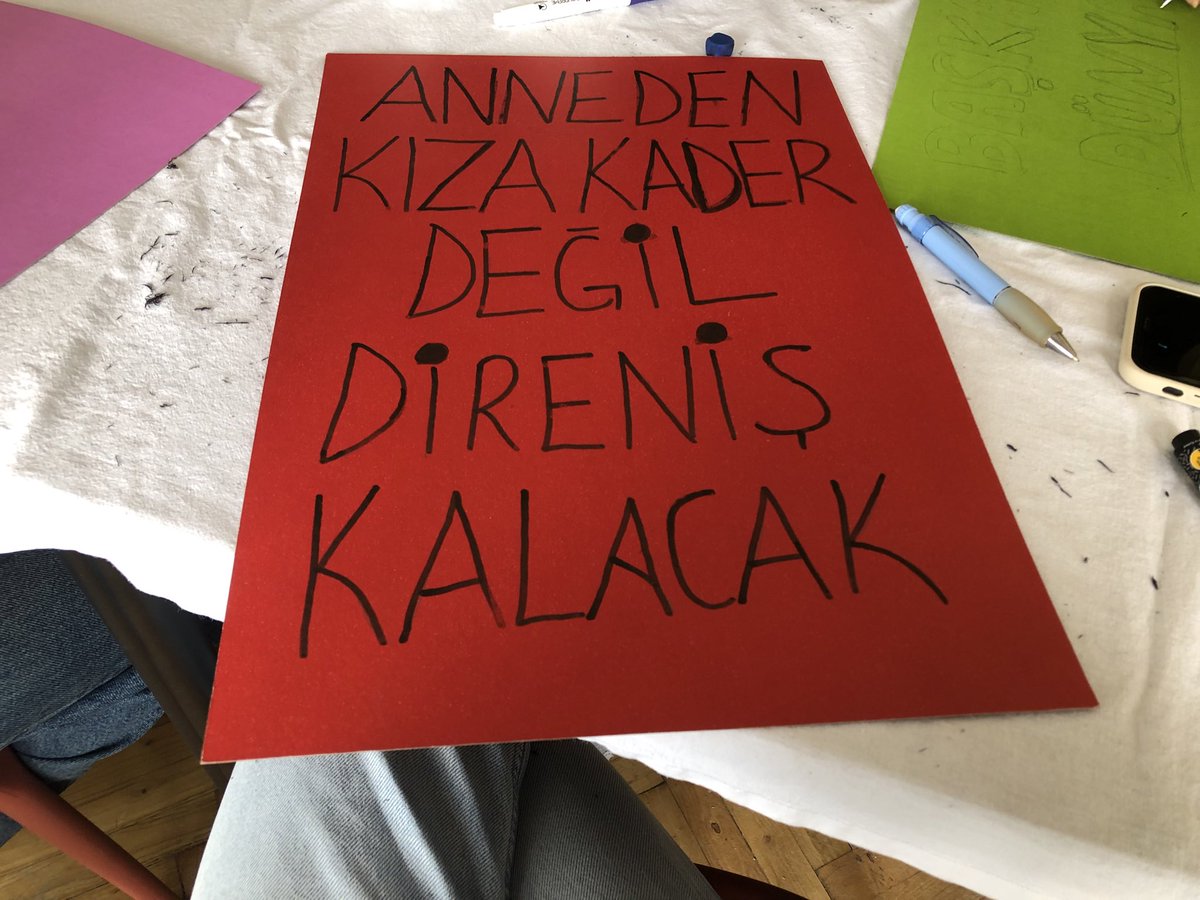 ANNEDEN
KIZA KADER
DEĞİL
DİRENİŞ
KALACAK
BAŞK